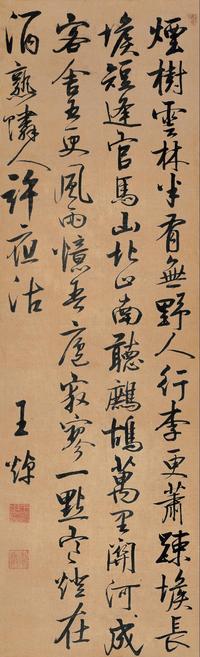 煙樹雲林半有無野人行李更蕭疎堠長
堠短逢官馬山北山南聽鷓鴣萬里關河成
客舍五更風雨憶吾廬寂寥一點寒燈在
酒熟鄰人許夜沽
王